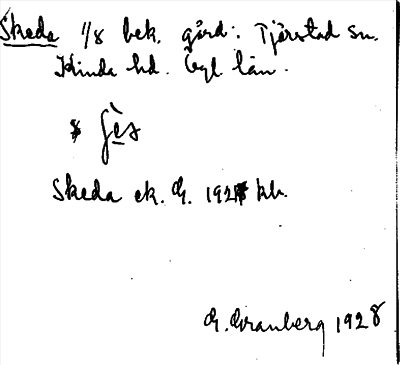 Skeda 1/8 bek. gård: Tjärstad sn.
Kinda hd. Ögl. län.
Skeda ek. G. 192 kb.
G. Granberg 1928